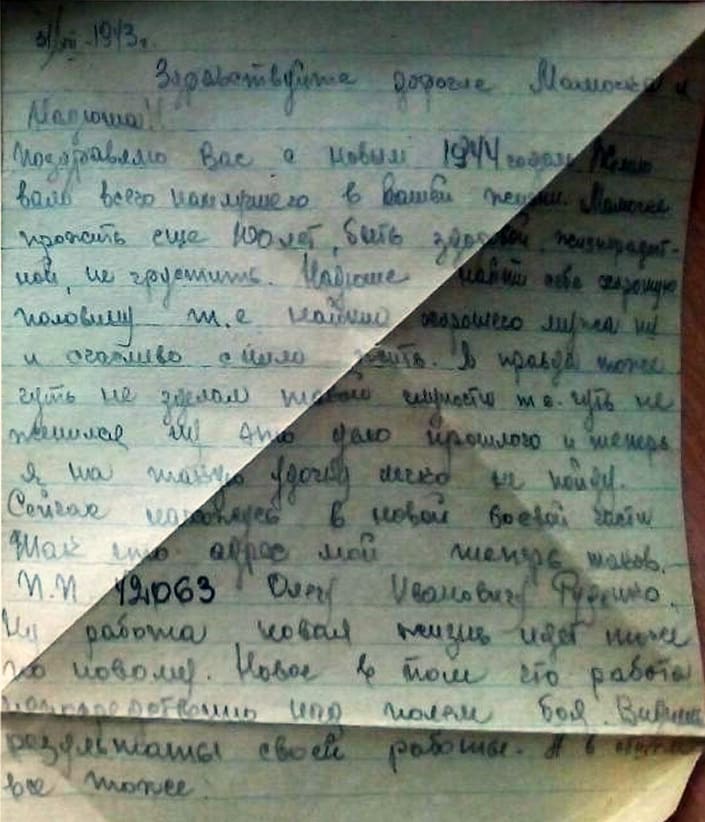 31/XII-1943 г.
Здравствуйте дорогие Мамочка и
Надюша!!
Поздравляю Вас с новым 1944 годом. Желаю
вам всего наилучшего в вашей жизни. Мамочке
прожить еще 100 лет, быть здоровой, жизнерадост-
ной, не грустить. Надюше найти себе хорошую
половину т.е. найти хорошего мужа ну
и счастливо с ним жить. Я правда тоже
чуть не зделал такой глупости т.е. чуть не
женился ну это дело прошлого и теперь
я на такую удочку легко не пойду.
Сейчас нахожусь в новой боевой части
Так что адрес мой теперь таков.
П.П. 42063 Олегу Ивановичу
Ну работа новая жизнь идет тоже
по новому. Новое в том что работа
непосредственно над полем боя. Видишь
результаты своей работы. А в
все тоже.